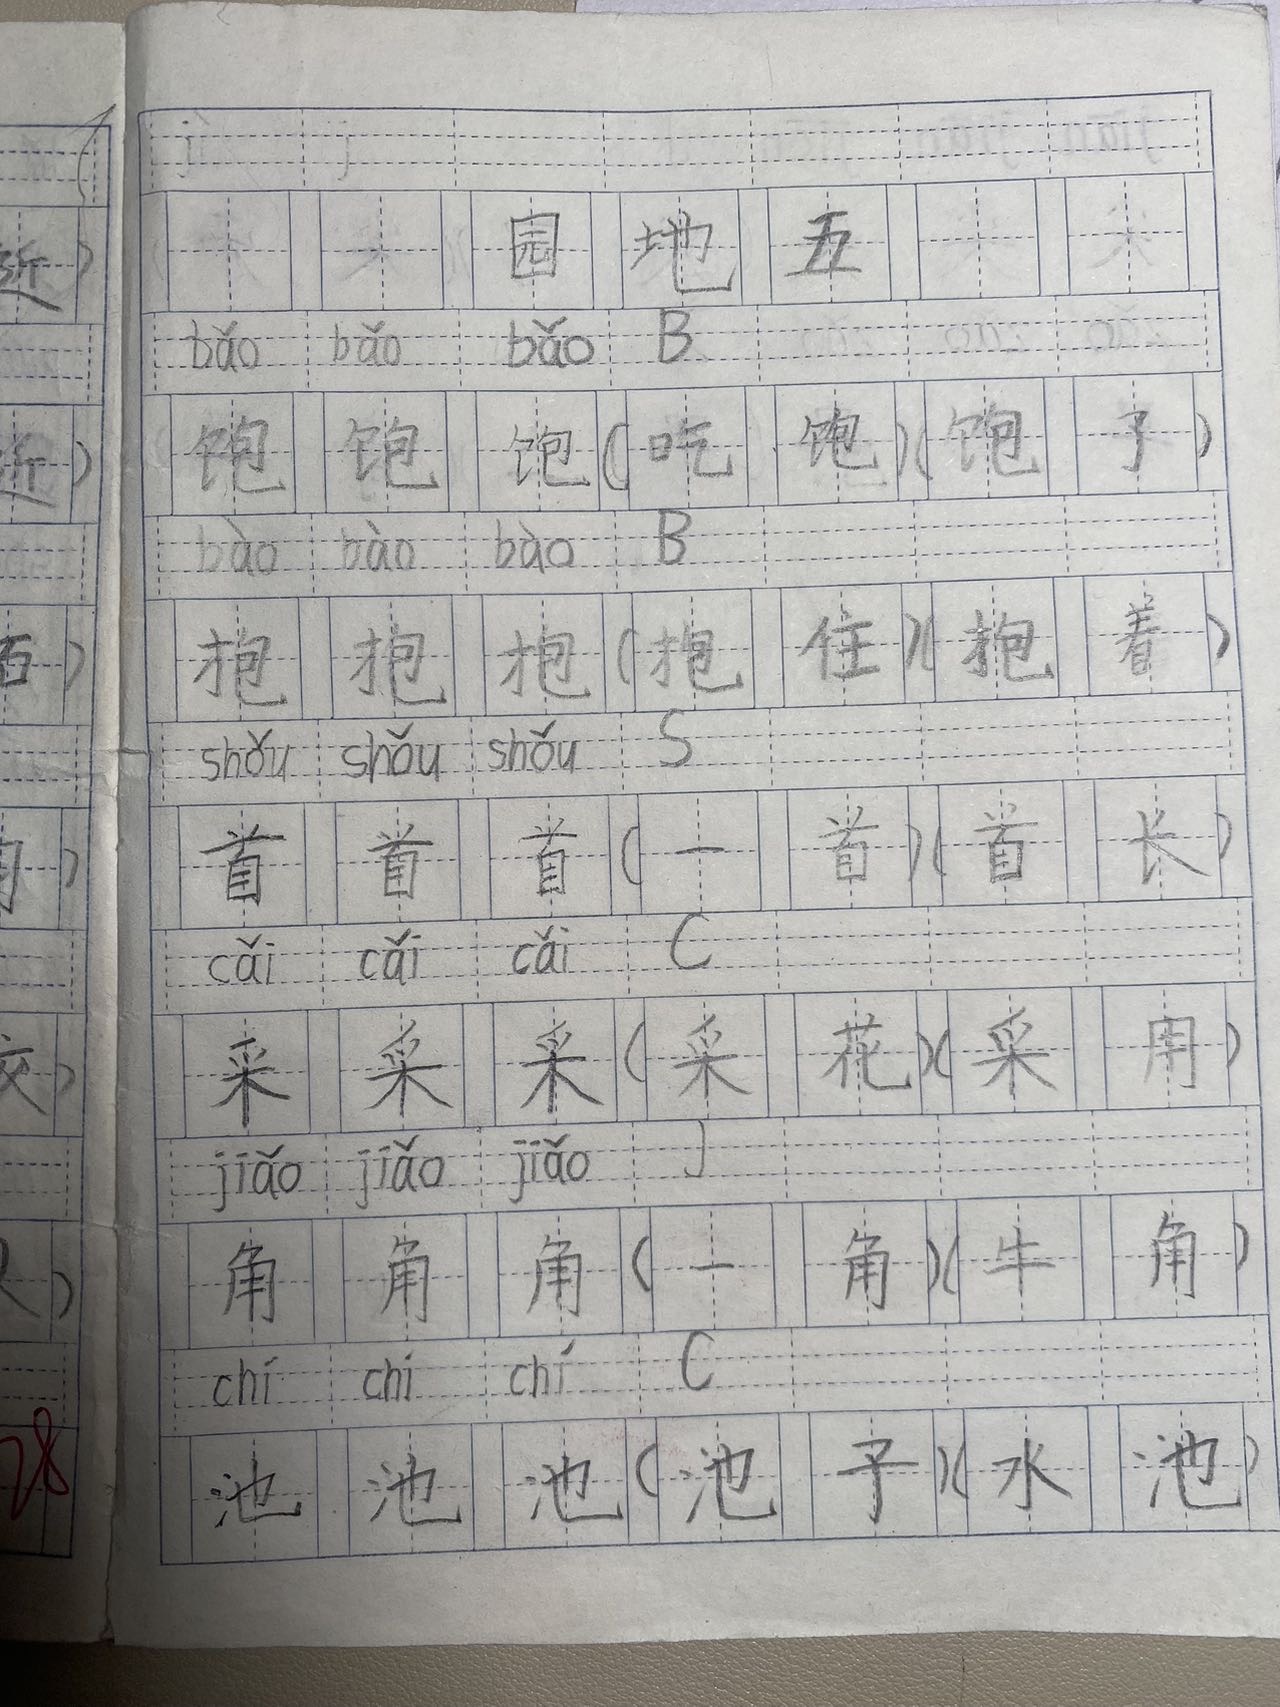 园地五
bǎo bǎo bǎo B
饱饱饱(吃饱)(饱子)
bào bào bào B
抱抱抱(抱住)(抱着)
shǒu shǒu shǒu S
首首首(一首)(首长)
cǎi cǎi cǎi C
采采采(采花)(采用)
jiǎo jiǎo jiǎo J
角角角(一角)(牛角)
chí chí chí C
池池池(池子)(水池)
近)
近)
)
)
)
)
78